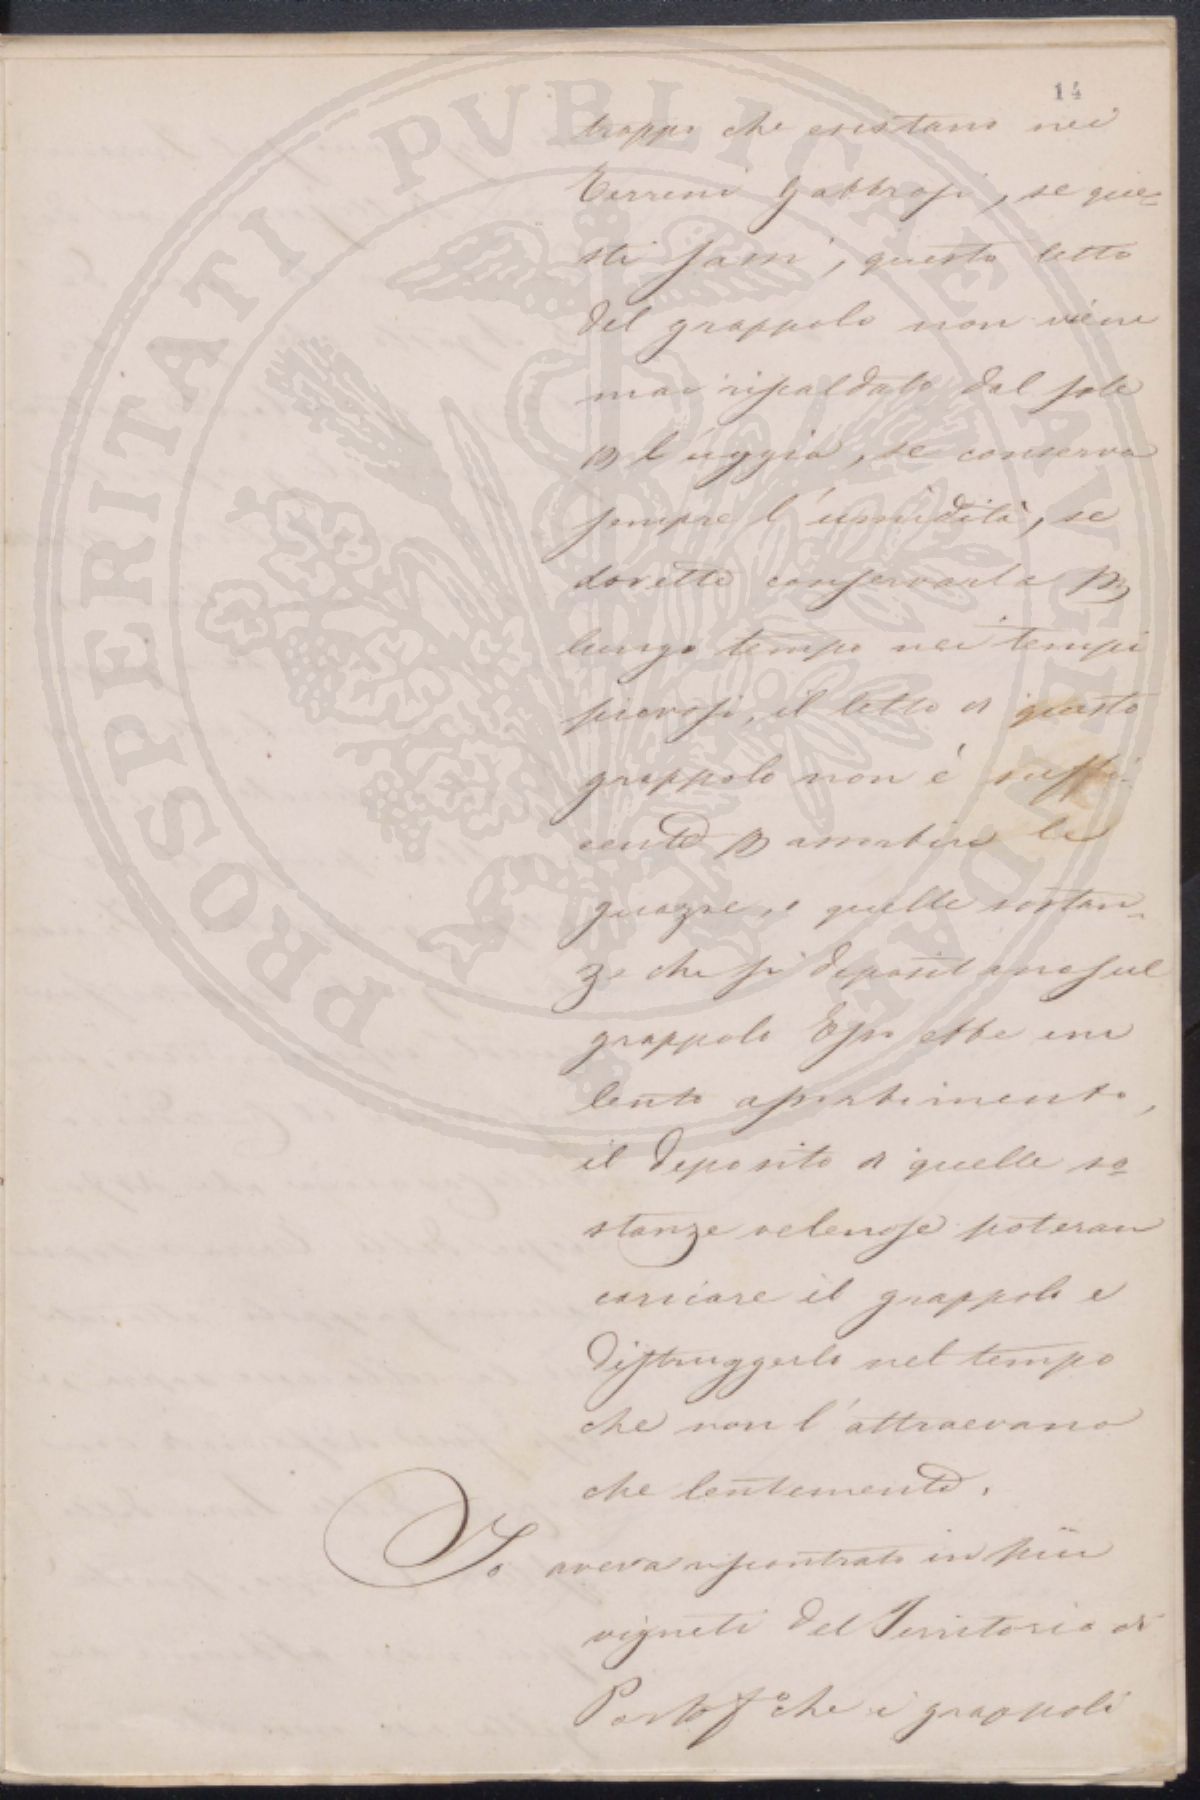 14
troppo che esistano nei
Terreni Gabbrosi, se que=
sti sani, questo letto
del grappolo non viene
mai riscaldato dal sole
p l'uggia, se conserva
sempre l'umidità, se
dovette conservarla p
lungo tempo nei tempi
piovosi, il letto di questo
grappolo non è suffi-
cente p assorbire le
guazze, e quelle sostan=
ze che si depositano sul
grappolo Esso ebbe un
lento assorbimento,
il deposito di quelle so=
stanze velenose poteran
corciare il grappolo e
distruggerlo nel tempo
che non l'attraevano
che lentemente.
Io aveva riscontrato in più
vigneti del Territorio di
Portof.º che i grappoli
PROSPERITATI PVBLICAE AVGENDAE